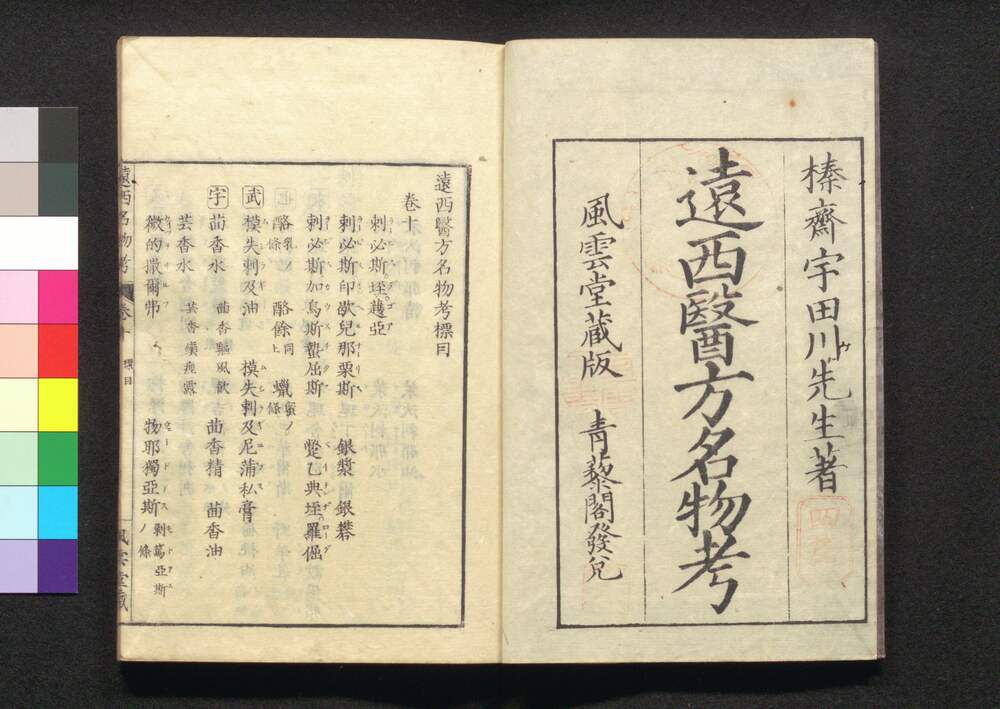 榛齋宇田川先生著
遠西醫方名物考
風雲堂藏版　青藜閣發兌
遠西醫方名物考標目
卷十
刺必斯垤蘰亞
刺必斯印歇兒那栗斯　銀漿　銀礬
刺必斯加烏斯蟄屈斯　蹩乙典垤羅偃
酪條　酪餘　蠟條
武　模失刺及油　模失刺及尼蒲私膏
宇　茴香水　茴香驅風飲　茴香精　茴香油
芸香水
微的撒爾弗　物耶獨亞斯ノ條
遠西名物考　卷十　標目　風雲堂藏